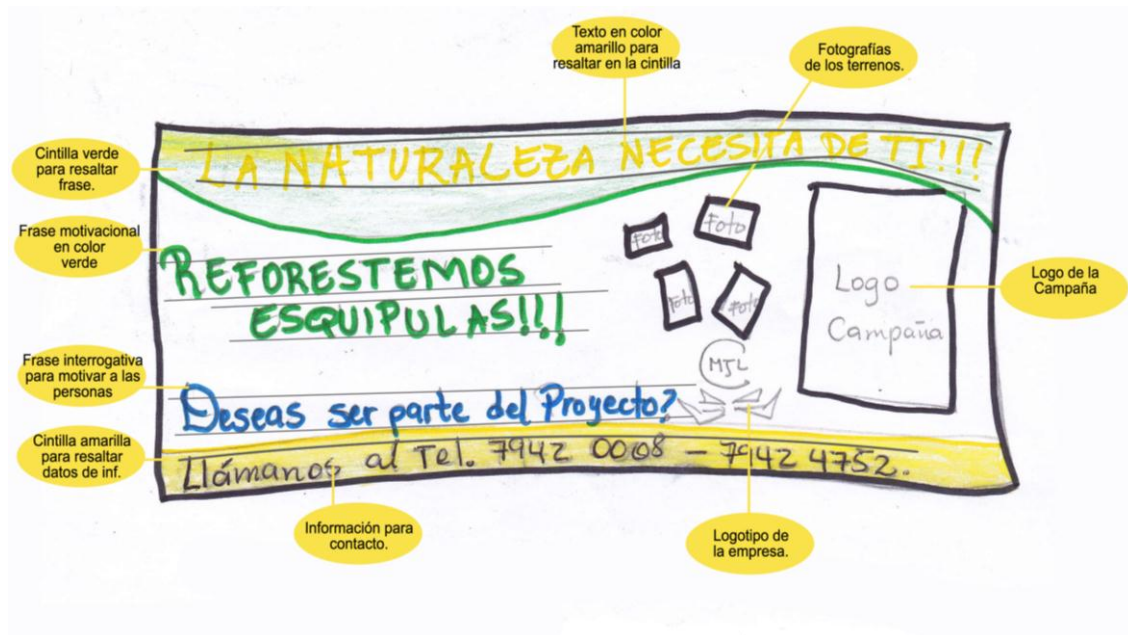 Texto en color
amarillo para
resaltar en la cintilla
Fotografías
de los terrenos.
Cintilla verde
para resaltar
frase.
LA NATURALEZA NECESITA DE TI!!!
Frase motivacional
en color
verde
REFORESTEMOS
ESQUIPULAS!!!
Foto
Foto
Foto
Foto
Logo
Campaña
Logo de la
Campaña
MJL
Frase interrogativa
para motivar a las
personas
Deseas ser parte del Proyecto?
Cintilla amarilla
para resaltar
datos de inf.
Llámanos al Tel. 7942 0008 - 7942 4752.
Información para
contacto.
Logotipo de
la empresa.